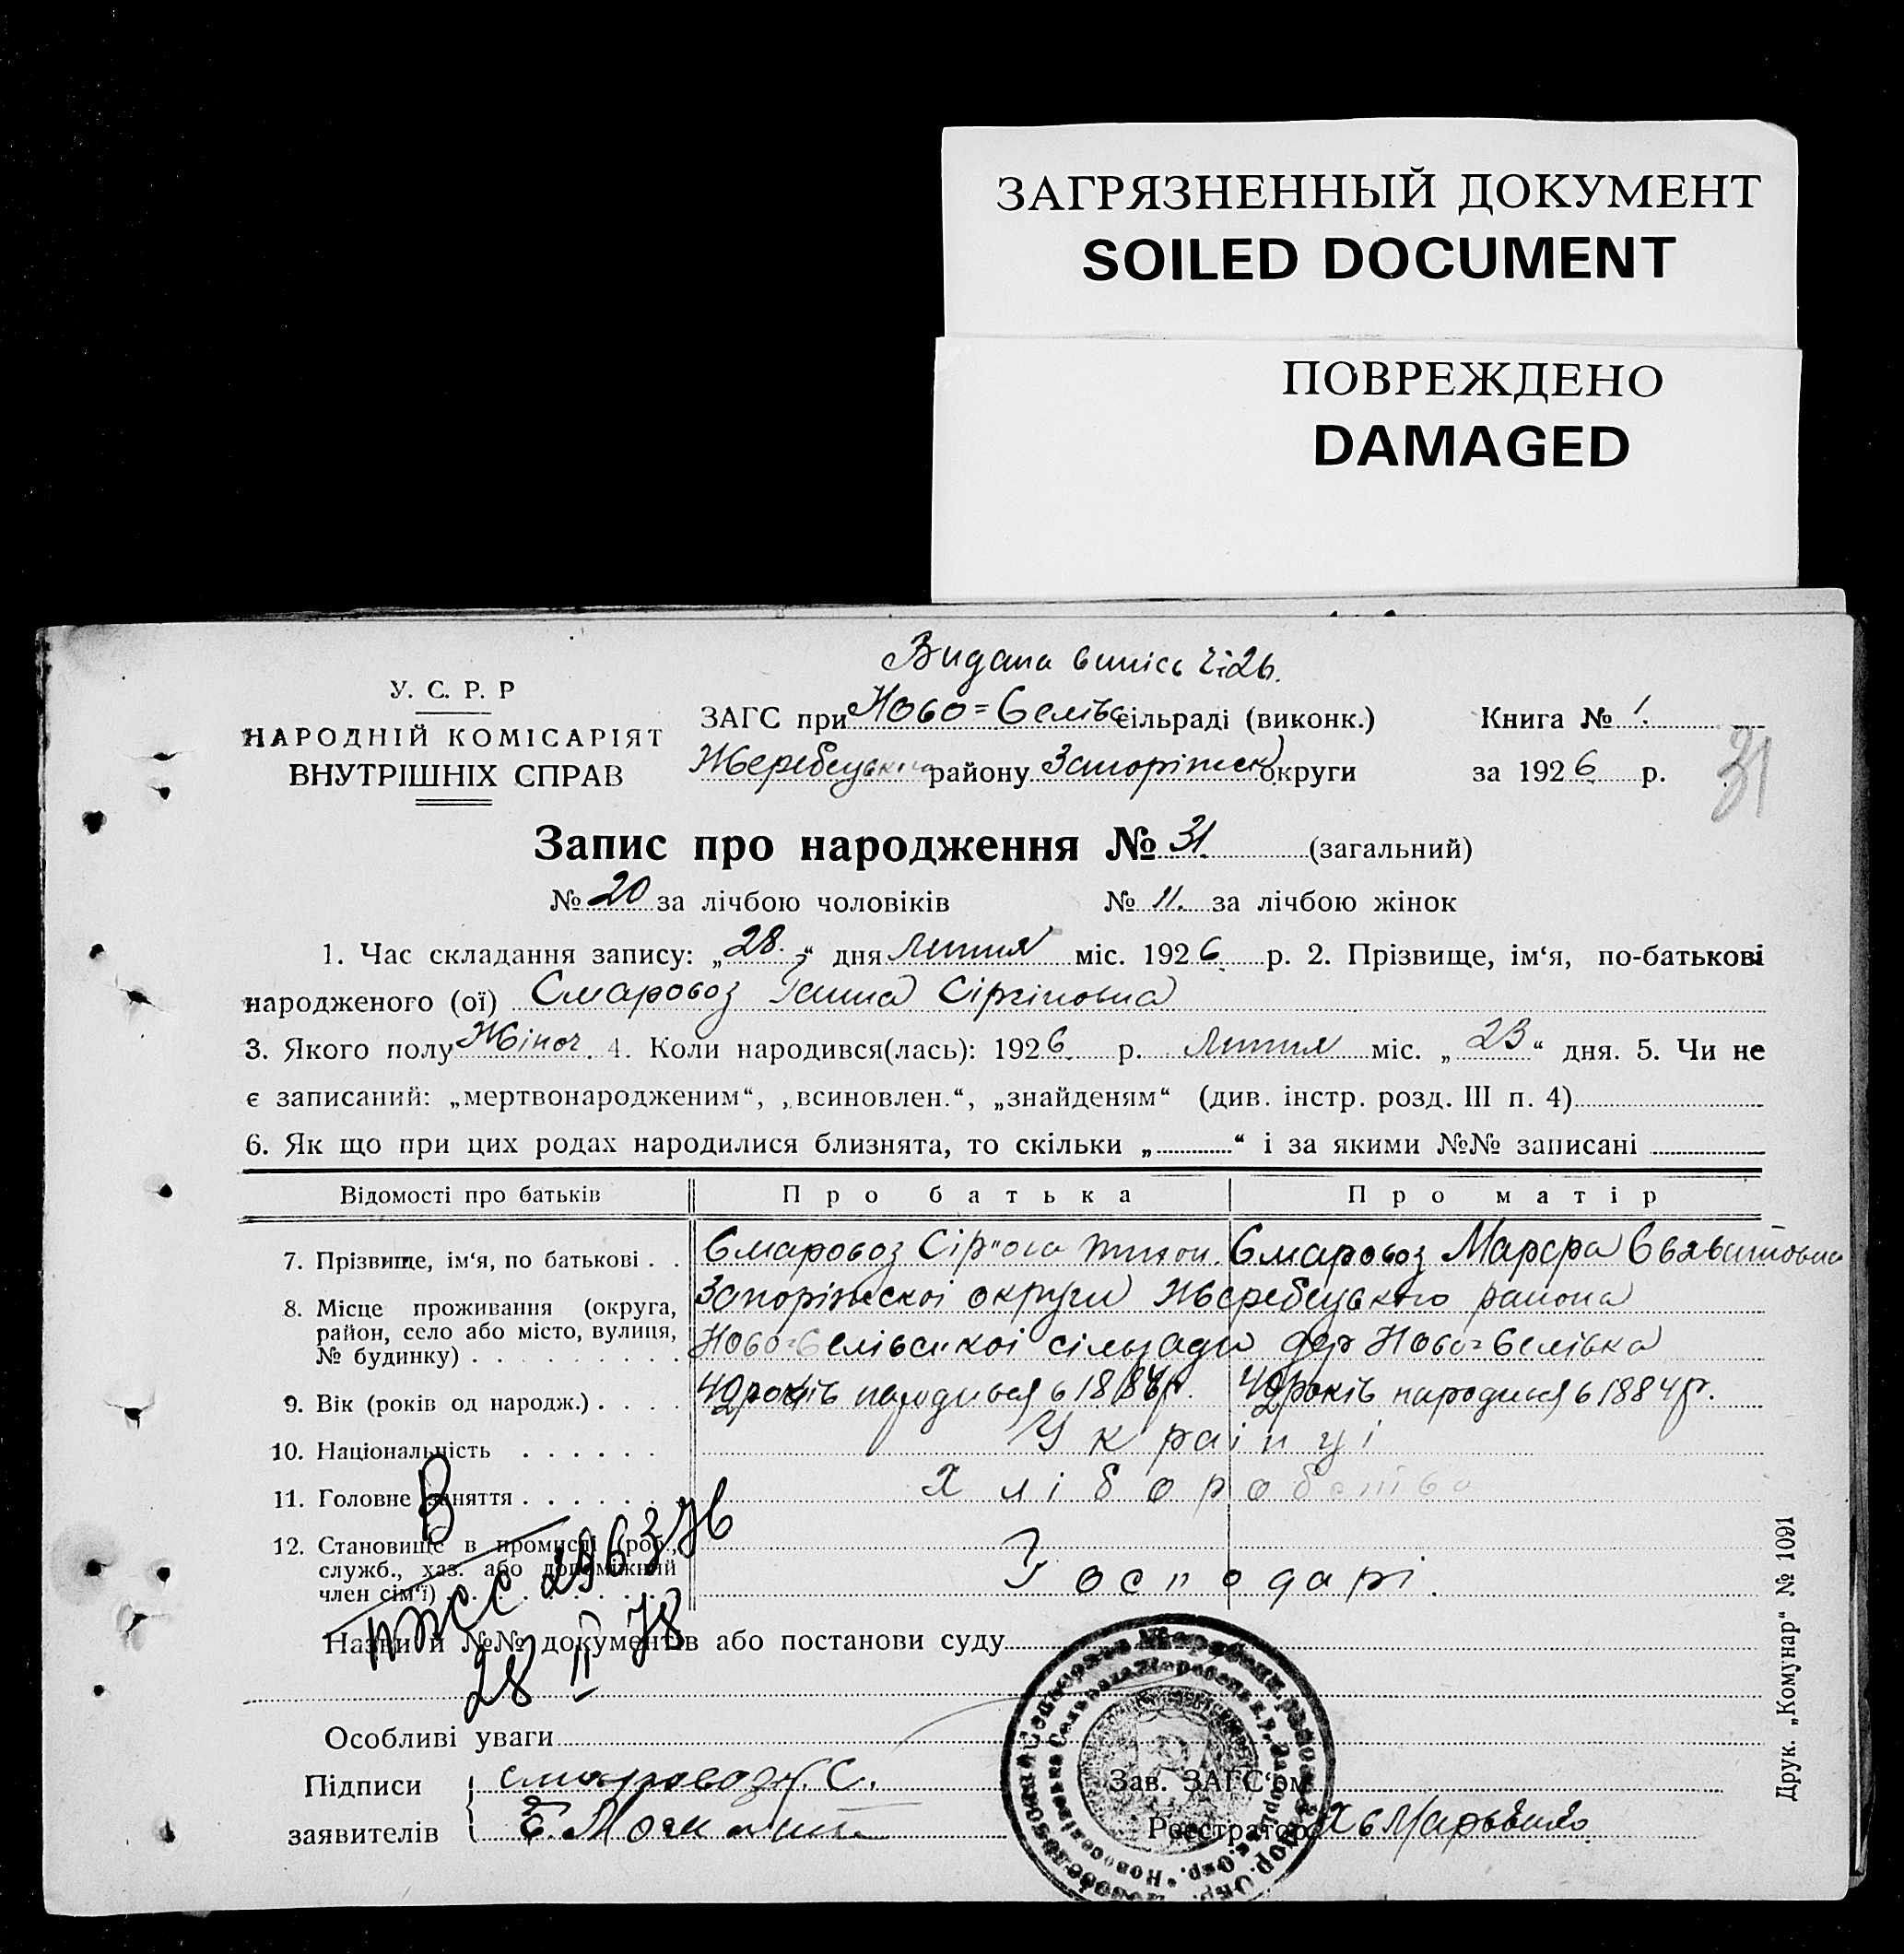 ЗАГРЯЗНЕННЫЙ ДОКУМЕНТ
SOILED DOCUMENT
ПОВРЕЖДЕНО
DAMAGED
Видана випісь
У. С. Р. Р
НАРОДНІЙ КОМІСАРІЯТ
ВНУТРІШНІХ СПРАВ
ЗАГС при Ново=Селівс сільраді (виконк.) Книга № 1.
Жеребецького району Запоріжск округи за 1926 р.
31
Запис про народження № 31. (загальний)
№ 20 за лічбою чоловіків № 11. за лічбою жінок
1. Час складання запису: „28.“ дня Липня міс. 1926 р. 2. Прізвище, ім‘я, по-батькові
народженого (ої) Смаровоз Ганна Сіргіповна
3. Якого полу Жіноч. 4. Коли народився(лась): 1926 р. Липня міс. „23“ дня. 5. Чи не
є записаний: „мертвонародженим“, „всиновлен.“, „знайденям“ (див. інстр. розд. III п. 4)
6. Як що при цих родах народилися близнята, то скільки „ “ і за якими №№ записані
Відомості про батьків Про батька Про матір
7. Прізвище, ім‘я, по батькові . . Смаровоз Тихон. Смаровоз Марфа
8. Місце проживання (округа, Запоріжскоі округи Жеребецького района
район, село або місто, вулиця, Ново=Селівськоі сільради дер Ново=Селівка
№ будинку)
9. Вік (років од народж.) . . . . років народився в 42 років народився в 1884 р.
10. Національність . . . . . . Українці
11. Головне заняття . . . . . . Хліборобство
12. Становище в промислі (роб.,
служб., хаз. або допоміжний Господарі.
член сім‘ї)
В
296376
28 II 78
Назви й №№ документів або постанови суду
Особливі уваги
Підписи Смаровоз С.
заявителів
Зав. ЗАГС‘ом
Реєстратор
Друк. „Комунар“ № 1091